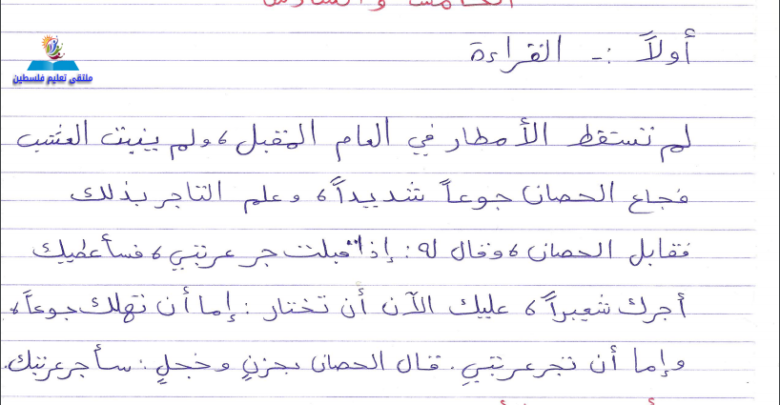 الخامس والسادس
أولاً :- القراءة
ملتقى تعليم فلسطين
لم تسقط الأمطار في العام المقبل، ولم ينبت العشب
فجاع الحصان جوعاً شديداً، وعلم التاجر بذلك
فقابل الحصان، وقال له: إذا قبلت جر عربتي، فسأعطيك
أجرك شعيراً، عليك الآن أن تختار: إما أن تهلك جوعاً،
وإما أن تجر عربتي. قال الحصان بحزنٍ وخجلٍ: سأجر عربتك.